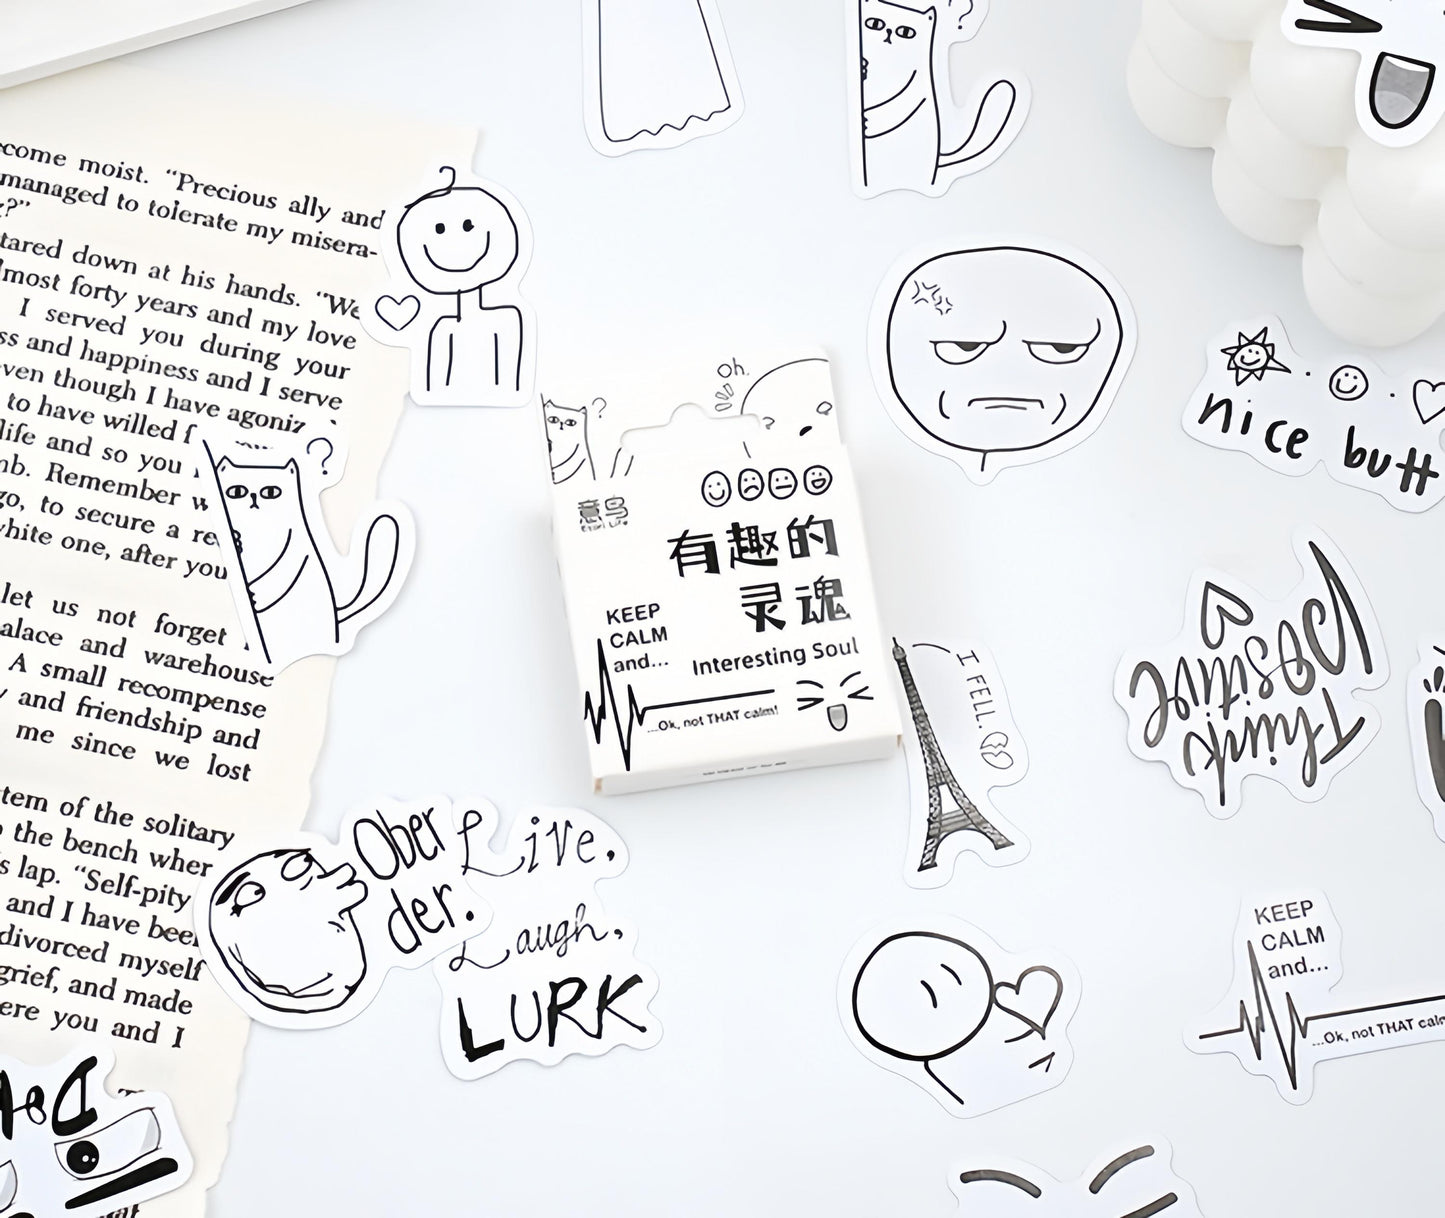 come moist. “Precious ally and
managed to tolerate my misera-
?”
tared down at his hands. “We
lmost forty years and my love
I served you during your
ss and happiness and I serve
ven though I have agoniz
to have willed f
life and so you
nb. Remember w
go, to secure a re
white one, after you
let us not forget
alace and warehouse
A small recompense
y and friendship and
me since we lost
tem of the solitary
the bench wher
s lap. “Self-pity
and I have bee
divorced myself
grief, and made
ere you and I
?
?
Oh.
?
?
意鸟
有趣的
灵魂
Interesting Soul
KEEP
CALM
and...
...Ok, not THAT calm!
nice butt
I FELL.
Think
Positive
Ober
der.
Live,
Laugh,
LURK
KEEP
CALM
and...
...Ok, not THAT calm